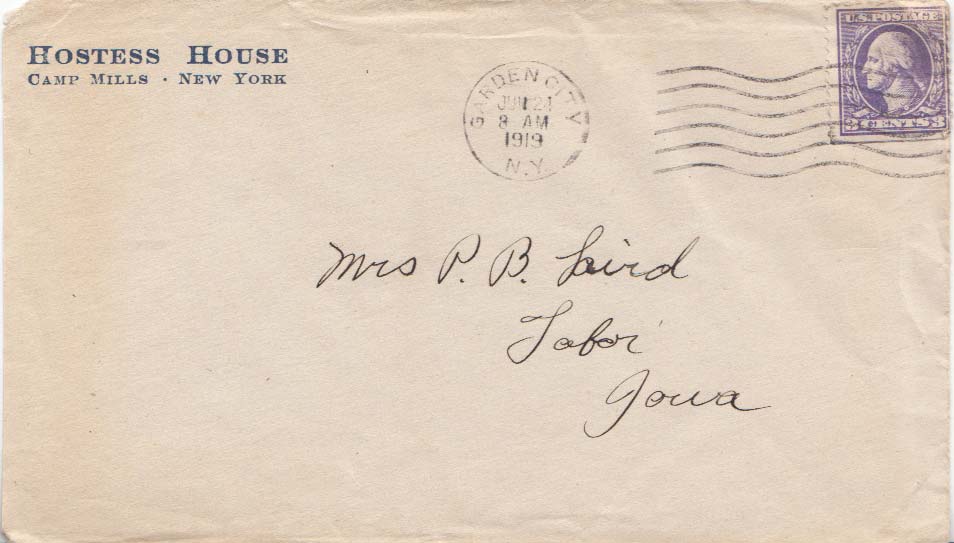 HOSTESS HOUSE
CAMP MILLS · NEW YORK
GARDEN CITY
JUN 24
8 AM
1919
N.Y.
U.S. POSTAGE
3 CENTS 3
Mrs P. B. Laird
Tabor
Iowa